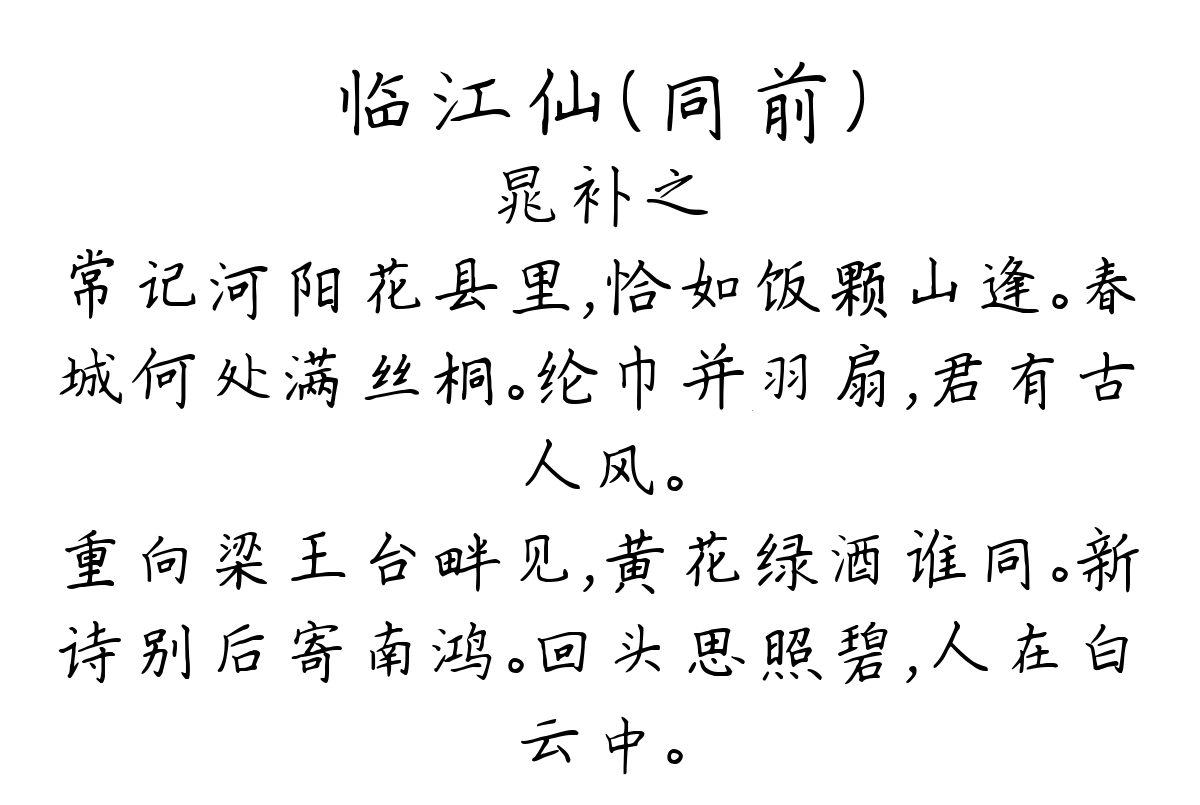 临江仙(同前)
晁补之
常记河阳花县里,恰如饭颗山逢。春
城何处满丝桐。纶巾并羽扇,君有古
人风。
重向梁王台畔见,黄花绿酒谁同。新
诗别后寄南鸿。回头思照碧,人在白
云中。